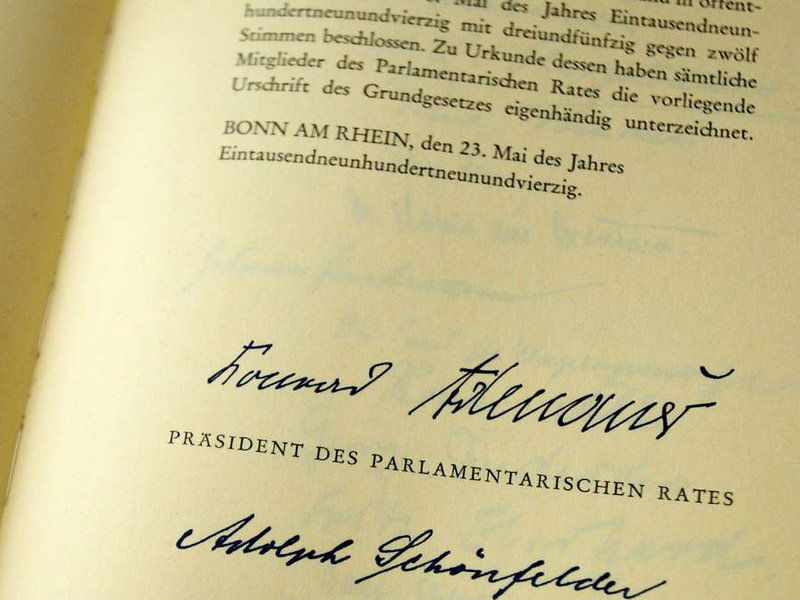 Mai des Jahres Eintausendneun-
hundertneunundvierzig mit dreiundfünfzig gegen zwölf
Stimmen beschlossen. Zu Urkunde dessen haben sämtliche
Mitglieder des Parlamentarischen Rates die vorliegende
Urschrift des Grundgesetzes eigenhändig unterzeichnet.
BONN AM RHEIN, den 23. Mai des Jahres
Eintausendneunhundertneunundvierzig.
Konrad Adenauer
PRÄSIDENT DES PARLAMENTARISCHEN RATES
Adolph Schönfelder